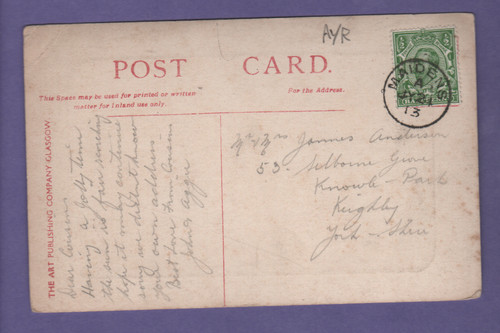 AYR
POST CARD.
This Space may be used for printed or written
matter for Inland use only.
For the Address.
MAIDENS
13
THE ART PUBLISHING COMPANY, GLASGOW.
Dear Cousins
Having a Jolly time
the sun is fair smiling
hope it may continue
sorry we didnt know
your own address
Best love From Cousin
John & Aggie
Mr & Mrs Jammes Anderson
53. Selborne Grove
Knowle-Park
Keighley
York-Shire